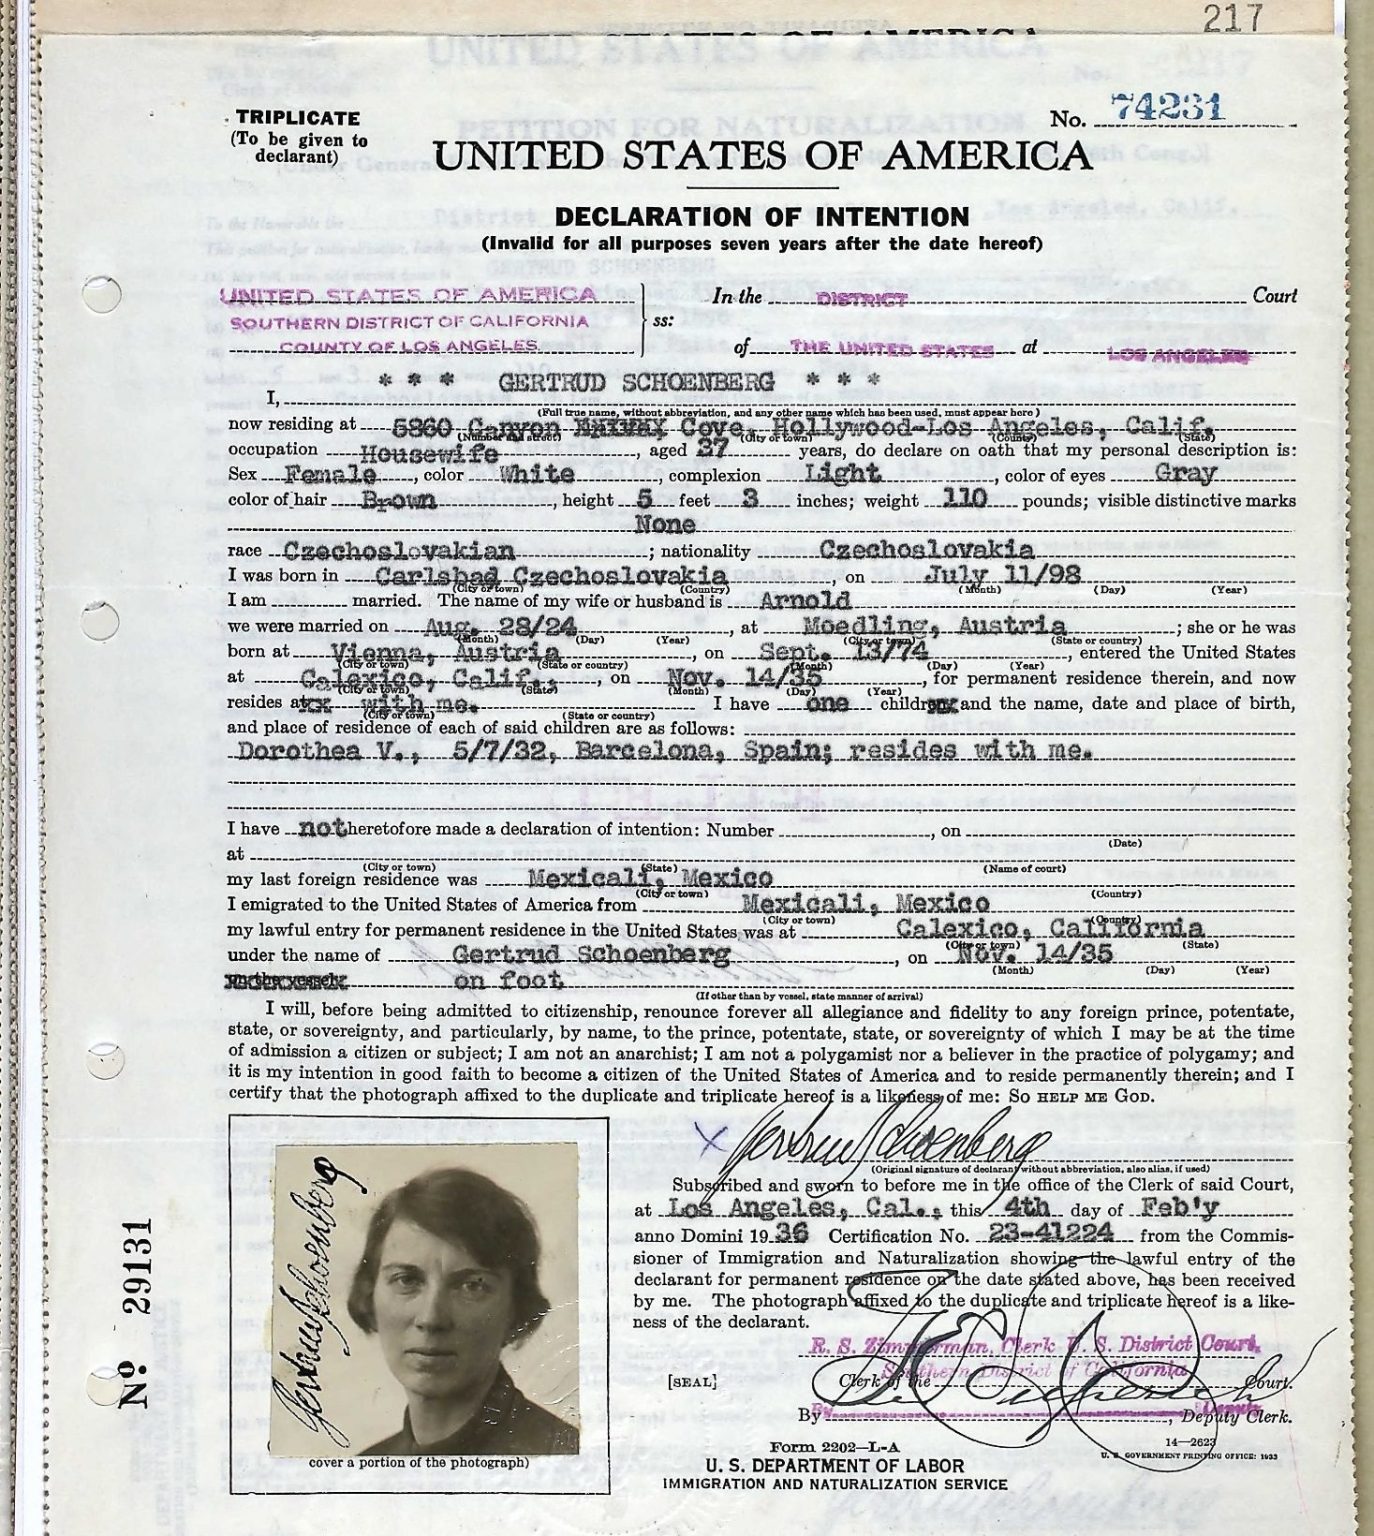 217
TRIPLICATE
(To be given to
declarant)
No. 74231
UNITED STATES OF AMERICA
DECLARATION OF INTENTION
(Invalid for all purposes seven years after the date hereof)
UNITED STATES OF AMERICA
SOUTHERN DISTRICT OF CALIFORNIA
COUNTY OF LOS ANGELES
ss:
In the DISTRICT Court
of THE UNITED STATES at LOS ANGELES
I, * * * GERTRUD SCHOENBERG * * *
(Full true name, without abbreviation, and any other name which has been used, must appear here)
now residing at 5860 Canyon Cove, Hollywood-Los Angeles, Calif.
(Number and street) (City or town) (County) (State)
occupation Housewife, aged 37 years, do declare on oath that my personal description is:
Sex Female, color White, complexion Light, color of eyes Gray
color of hair Brown, height 5 feet 3 inches; weight 110 pounds; visible distinctive marks
None
race Czechoslovakian; nationality Czechoslovakia
I was born in Carlsbad Czechoslovakia, on July 11/98
(City or town) (Country) (Month) (Day) (Year)
I am married. The name of my wife or husband is Arnold
we were married on Aug. 28/24, at Moedling, Austria; she or he was
(Month) (Day) (Year) (City or town) (State or country)
born at Vienna, Austria, on Sept. 13/74, entered the United States
(City or town) (State or country) (Month) (Day) (Year)
at Calexico, Calif., on Nov. 14/35, for permanent residence therein, and now
(City or town) (State) (Month) (Day) (Year)
resides at xx with me. I have one child and the name, date and place of birth,
(City or town) (State or country)
and place of residence of each of said children are as follows:
Dorothea V., 5/7/32, Barcelona, Spain; resides with me.
I have not heretofore made a declaration of intention: Number, on
(Date)
at
(City or town) (State) (Name of court)
my last foreign residence was Mexicali, Mexico
(City or town) (Country)
I emigrated to the United States of America from Mexicali, Mexico
(City or town) (Country)
my lawful entry for permanent residence in the United States was at Calexico, California
(City or town) (State)
under the name of Gertrud Schoenberg, on Nov. 14/35
(Month) (Day) (Year)
on the vessel on foot
(If other than by vessel, state manner of arrival)
I will, before being admitted to citizenship, renounce forever all allegiance and fidelity to any foreign prince, potentate,
state, or sovereignty, and particularly, by name, to the prince, potentate, state, or sovereignty of which I may be at the time
of admission a citizen or subject; I am not an anarchist; I am not a polygamist nor a believer in the practice of polygamy; and
it is my intention in good faith to become a citizen of the United States of America and to reside permanently therein; and I
certify that the photograph affixed to the duplicate and triplicate hereof is a likeness of me: SO HELP ME GOD.
X Gertrud Schoenberg
(Original signature of declarant without abbreviation, also alias, if used)
Subscribed and sworn to before me in the office of the Clerk of said Court,
at Los Angeles, Cal., this 4th day of Feb'y
anno Domini 1936 Certification No. 23-41224 from the Commis-
sioner of Immigration and Naturalization showing the lawful entry of the
declarant for permanent residence on the date stated above, has been received
by me. The photograph affixed to the duplicate and triplicate hereof is a like-
ness of the declarant.
R. S. Zimmerman, Clerk U. S. District Court,
Southern District of California
[SEAL] Clerk of the Court.
By, Deputy Clerk.
Gertrud Schoenberg
cover a portion of the photograph)
No 29131
Form 2202—L-A
U. S. DEPARTMENT OF LABOR
IMMIGRATION AND NATURALIZATION SERVICE
14—2623
U. S. GOVERNMENT PRINTING OFFICE: 1933